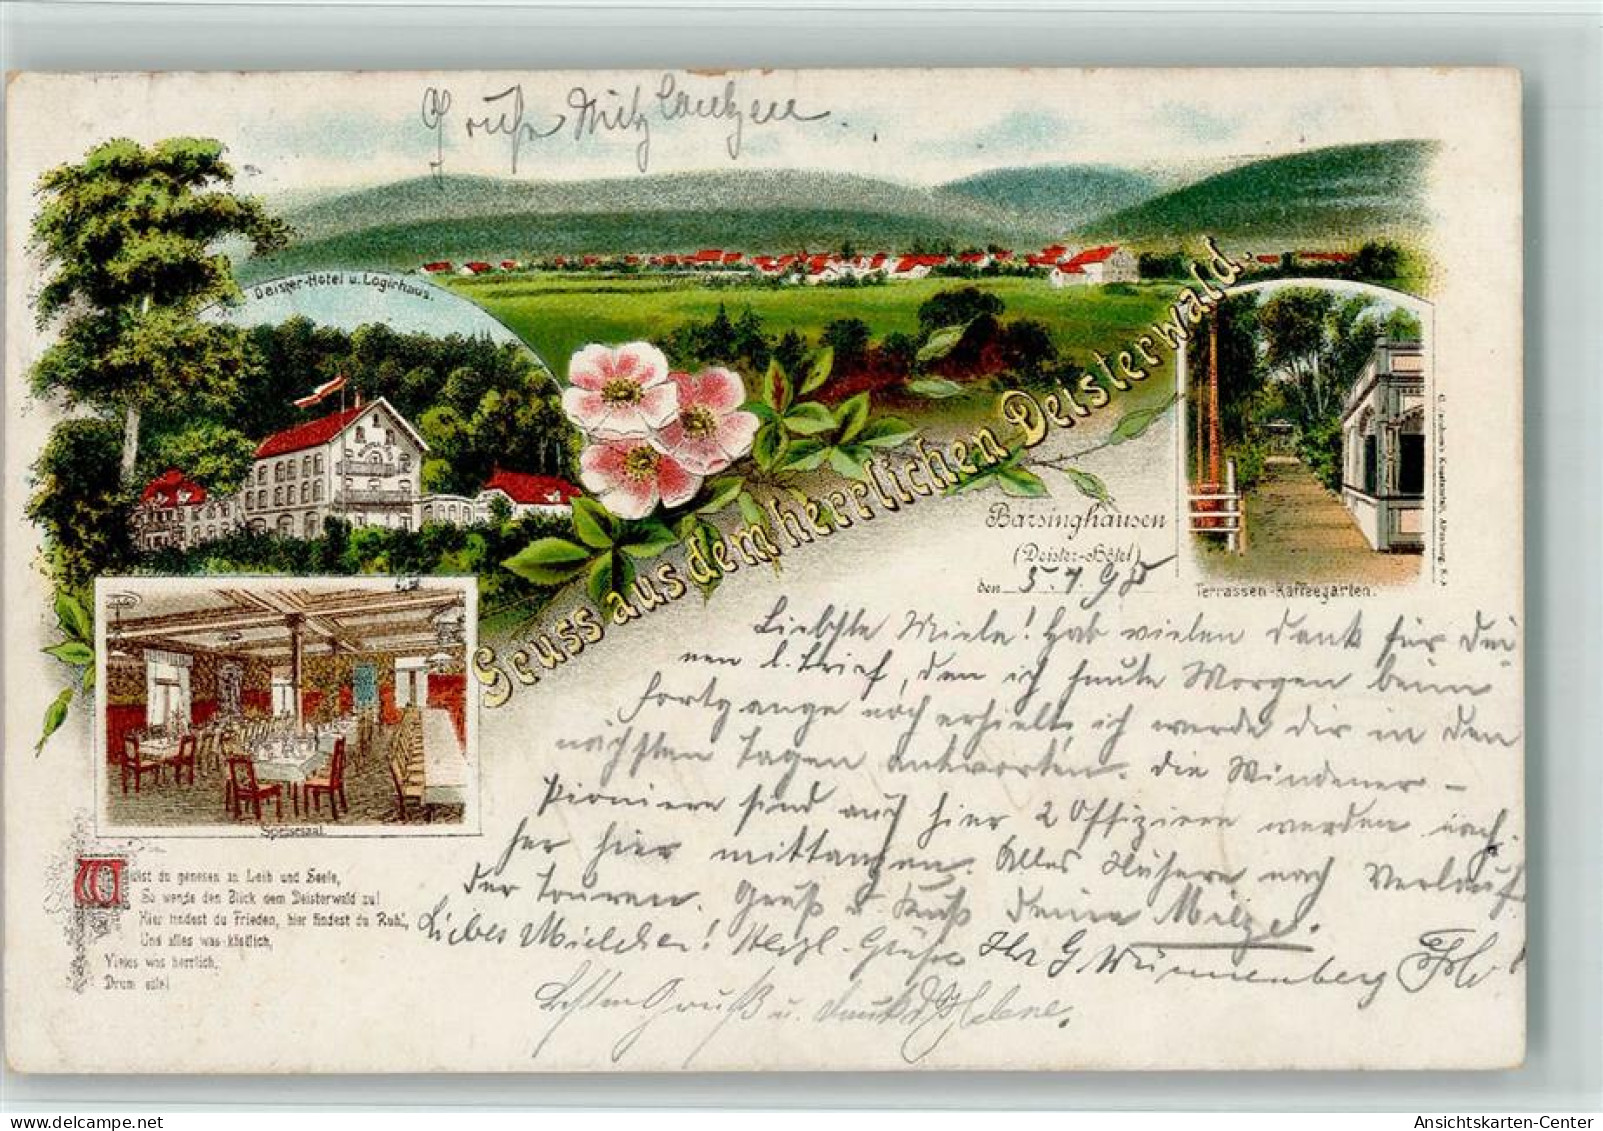 Deister-Hotel u. Logirhaus.
Gruss aus dem herrlichen Deisterwald.
Barsinghausen
(Deister-Hôtel)
den 5.7.98
Terrassen-Kaffeegarten.
Speisesaal.
Liebste Miele! Hab vielen Dank für Dei
nen l. Brief, den ich heute Morgen beim
Fortgange noch erhielt, ich werde dir in den
nächsten Tagen antworten. Die Mindener-
Pioniere sind auch hier 2 Offiziere werden nach-
her hier mittanzen. Alles Nähere nach Verlauf
der Touren. Gruß u. Kuß Deine
Liebes Mielchen! Herzl. Grüße Ihr G Wünnenberg
Gruß u. Helene.
Willst du genesen an Leib und Seele,
So wende den Blick dem Deisterwald zu!
Hier findest du Frieden, hier findest du Ruh',
Und alles was köstlich,
Vieles was herrlich,
Drum eile!
Ansichtskarten-Center